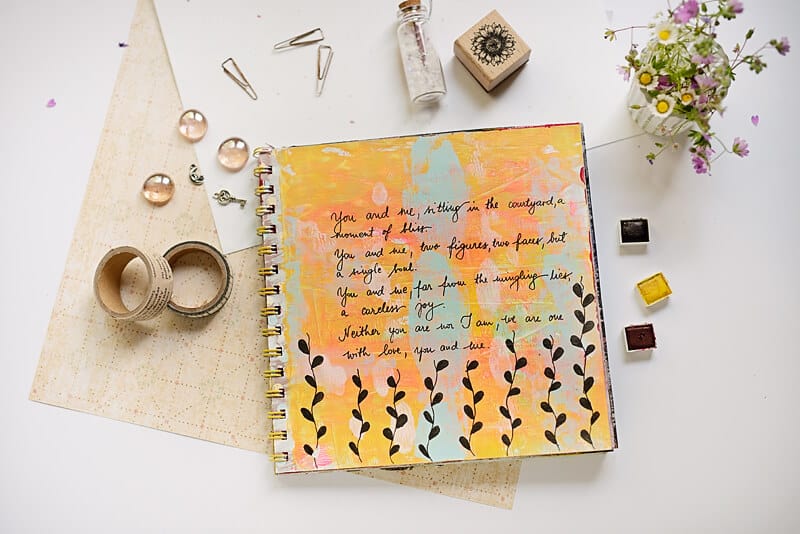 You and me, sitting in the courtyard, a
moment of bliss.
You and me, two figures, two faces, but
a single soul.
You and me, far from the mingling lies,
a careless joy.
Neither you are nor I am, we are one
with love, you and me.